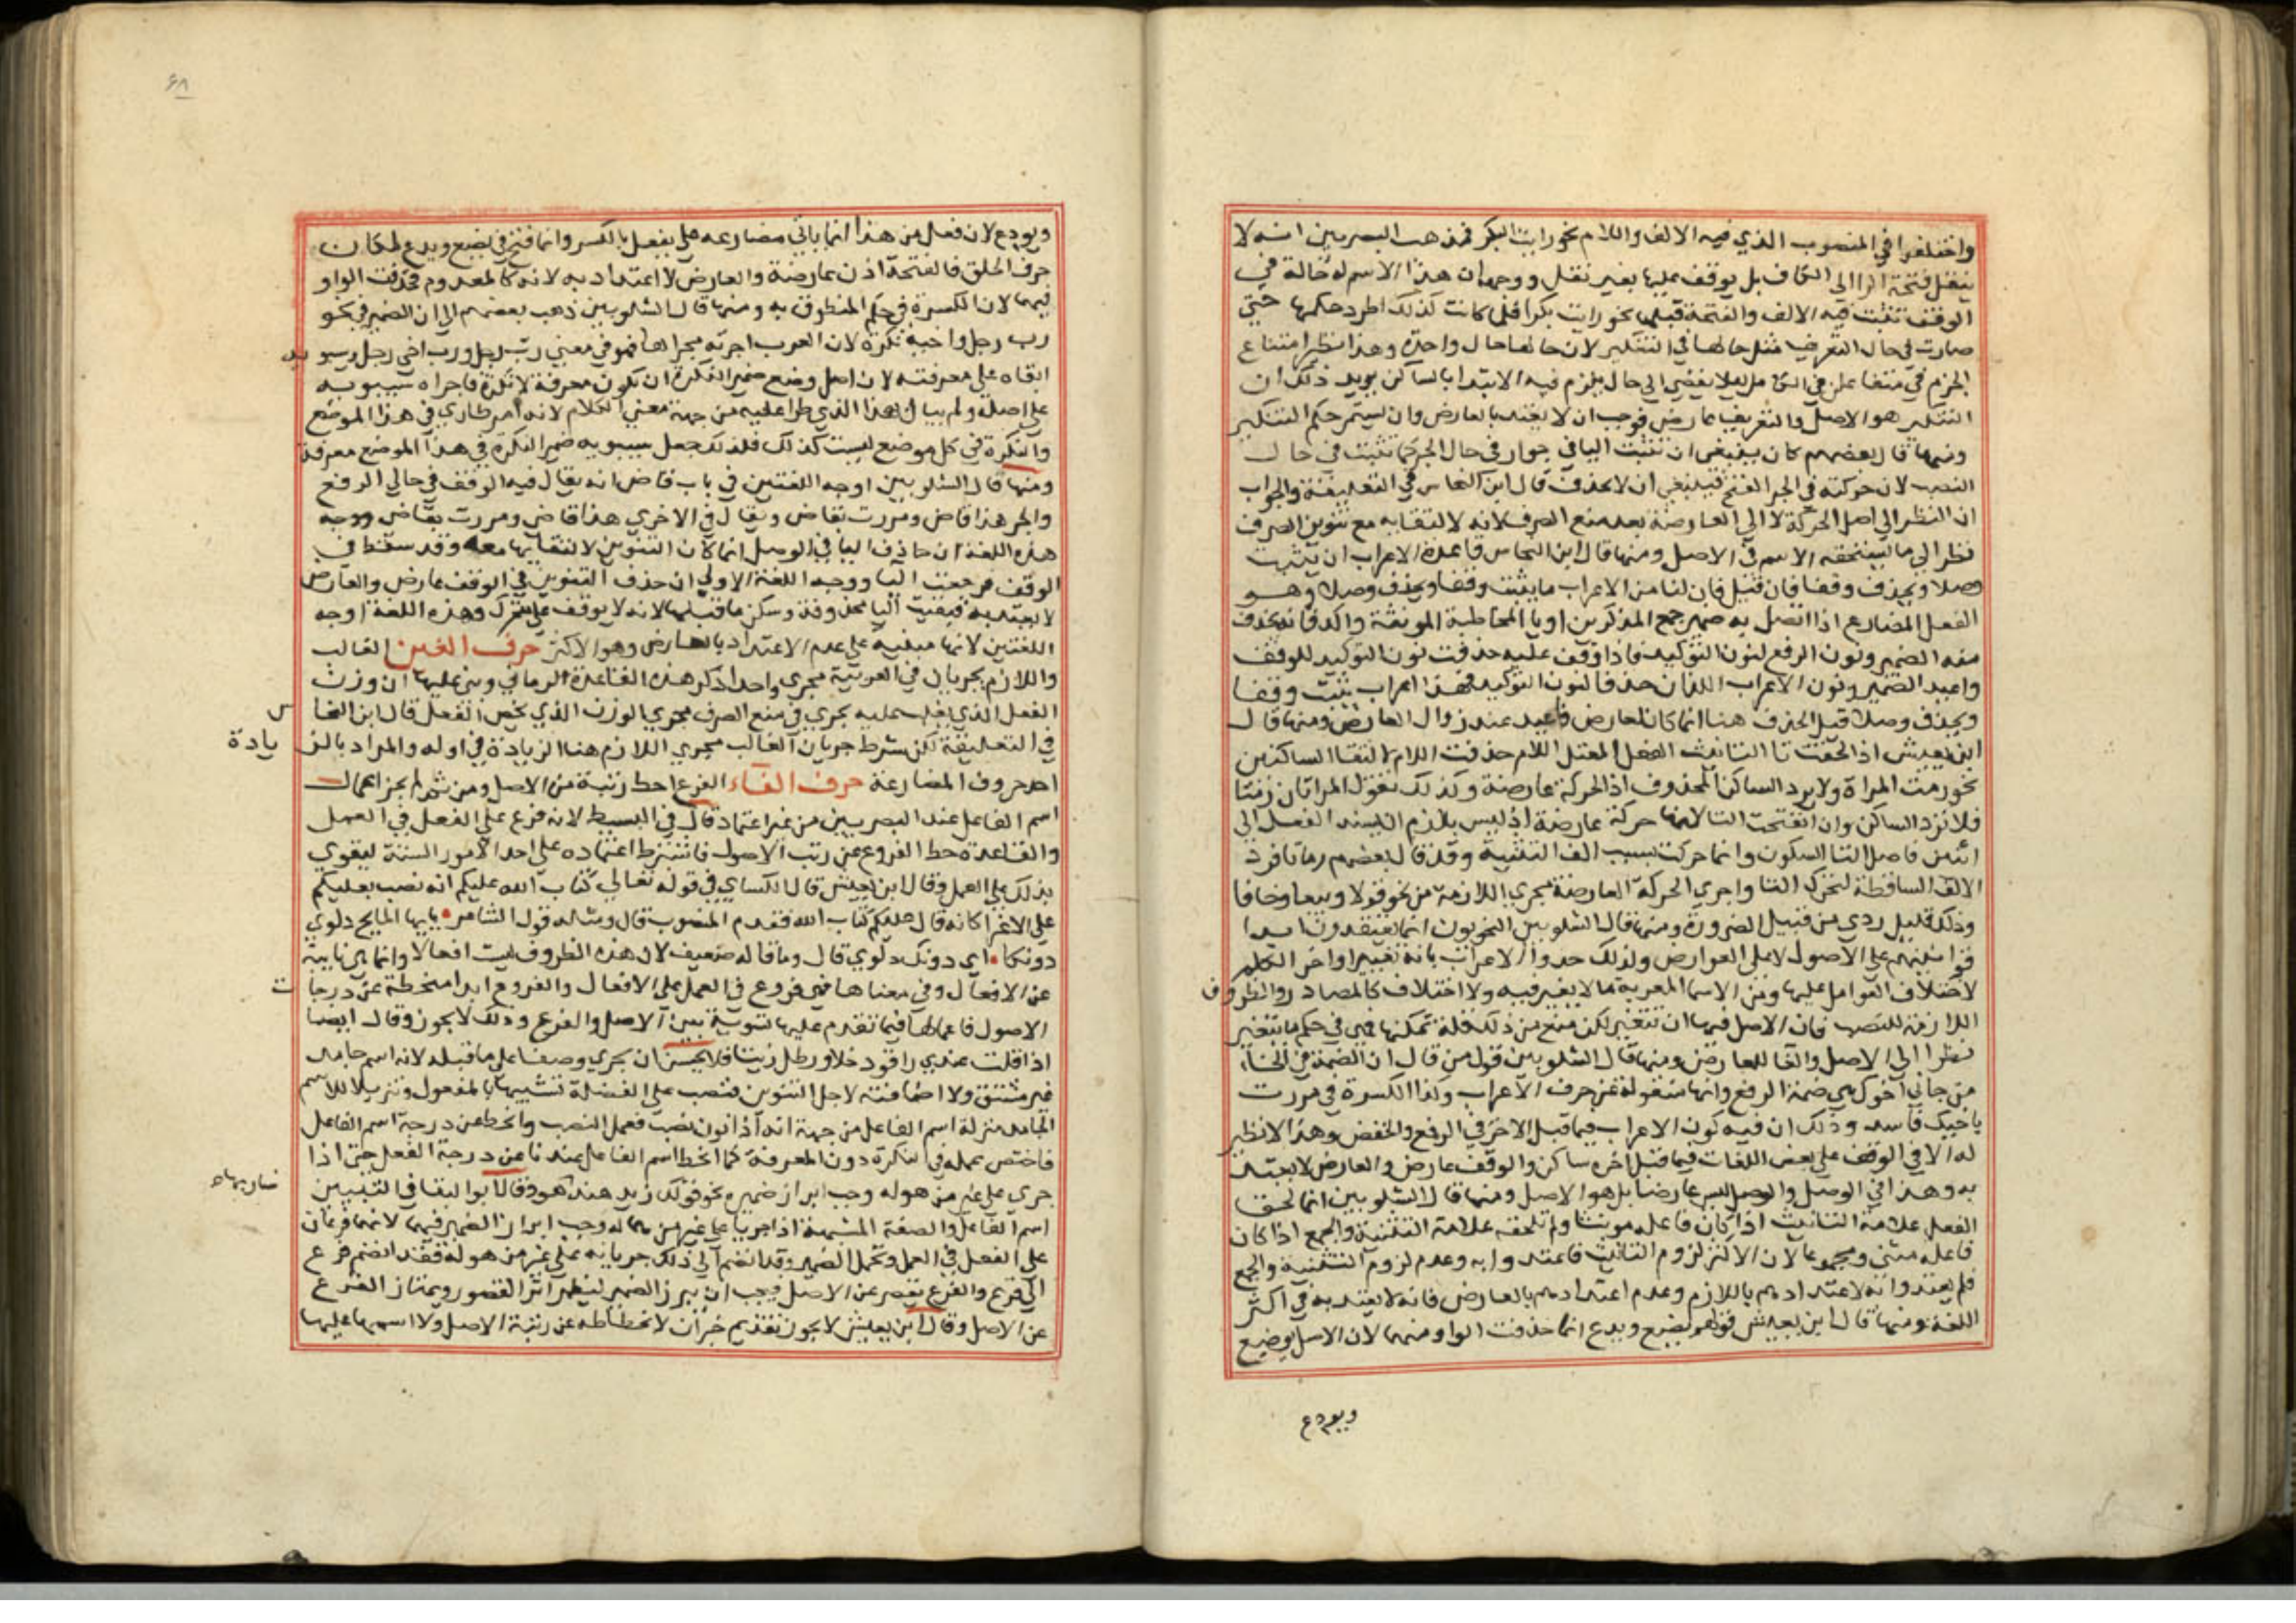 واختلفوا في المنصوب الذي فيه الالف واللام نحو رايت البكر فمذهب البصريين انه لا
ينقل فتحة الرا الى الكاف بل يوقف عليها بغير نقل ووجهه ان هذا الاسم له حالة في
الوقف تثبت فيه الالف والفتحة قبلها نحو رايت بكرا فلما كانت كذلك اطرد حكمها حتى
صارت في حال التعريف مثل حالها في التنكير لان حالها حال واحدة وهذا نظير امتناع
الخرم في متفاعلن في الكامل ليلا يفضي الى حال يلزم فيه الابتدا بالساكن يويد ذلك ان
التنكير هو الاصل والتعريف عارض فوجب ان لا يعتد بالعارض وان يستمر حكم التنكير
ومنها قال بعضهم كان ينبغي ان تثبت اليا في جوار في حال الجر كما تثبت في حال
النصب لان حركته في الجر الفتح فينبغي ان لا يحذف قال ابن النحاس في التعليقة والجواب
ان النظر الى اصل الحركة لا الى العارضة بعد منع الصرف لانه لالتقايه مع تنوين الصرف
نظر الى ما يستحقه الاسم في الاصل ومنها قال ابن النحاس قاعدة الاعراب ان يثبت
وصلا ويحذف وقفا فان قيل فان لنا من الاعراب ما يثبت وقفا ويحذف وصلا وهو
الفعل المضارع اذا اتصل به ضمير جمع المذكرين او يا المخاطبة المونثة واكد فانه يحذف
منه الضمير ونون الرفع لنون التوكيد فاذا وقف عليه حذفت نون التوكيد للوقف
واعيد الضمير ونون الاعراب اللذان حذفا لنون التوكيد فهذا اعراب يثبت وقفا
ويحذف وصلا قيل الحذف هنا انما كان لعارض فاعيد عند زوال العارض ومنها قال
ابن يعيش اذ الحقت تا التانيث الفعل المعتل اللام حذفت اللام لالتقا الساكنين
نحو رمت المراة ولا يرد الساكن المحذوف اذ الحركة عارضة وكذلك تقول المراتان رمتا
فلا ترد الساكن وان انفتحت التا لانها حركة عارضة اذ ليس بلازم ان يسند الفعل الى
اثنين فاصل التا السكون وانما حركت بسبب الف التثنية وقد قال بعضهم رماتا فرد
الالف الساقطة لتحرك التا واجرى الحركة العارضة مجرى اللازمة من نحو قولا وبيعا وخافا
وذلك قليل ردي من قبيل الضرورة ومنها قال الشلوبين النحويون انما يعتقدون ابدا
قوانينهم على الاصول لا على العوارض ولذلك حدوا الاعراب بانه تغيير اواخر الكلم
لاختلاف العوامل عليها ومن الاسما المعربة ما لا تغير فيه ولا اختلاف كالمصادر والظروف
اللازمة للنصب فان الاصل فيها ان تتغير لكن منع من ذلك قلة تمكنها فهي في حكم ما يتغير
نظرا الى الاصل والغا للعارض ومنها قال الشلوبين قول من قال ان الضمة في الخاء
من جاني اخوك هي ضمة الرفع وانها منقولة عن حرف الاعراب وكذا الكسرة في مررت
باخيك فاسد وذلك ان فيه كون الاعراب فيما قبل الاخر في الرفع والخفض وهذا لا نظير
له الا في الوقف على بعض اللغات فيما قبل اخره ساكن والوقف عارض والعارض لا يعتد
به وهذا في الوصل والوصل ليس عارضا بل هو الاصل ومنها قال الشلوبين انما لحق
الفعل علامة التانيث اذا كان فاعله مونثا ولم تلحقه علامة التثنية والجمع اذا كان
فاعله مثنى ومجموعا لان الاكثر لزوم التانيث فاعتدوا به وعدم لزوم التثنية والجمع
فلم يعتدوا به لاعتدادهم باللازم وعدم اعتدادهم بالعارض فانه لا يعتد به في اكثر
اللغة ومنها قال ابن يعيش قولهم يضع ويدع انما حذفت الواو منهما لان الاصل يوضع
ويودع
ويودع لان فعل من هذا انما ياتي مضارعه على يفعل بالكسر وانما فتح في يضع ويدع لمكان
حرف الحلق فالفتحة اذن عارضة والعارض لا اعتداد به لانه كالمعدوم فحذفت الواو
فيهما لان الكسرة في حكم المنطوق به ومنها قال الشلوبين ذهب بعضهم الى ان الضمير في نحو
رب رجل واخيه نكرة لان العرب اجرته مجراها فهو في معنى رب رجل ورب اخي رجل وسيبويه
ابقاه على معرفته لان اصل وضع ضمير النكرة ان يكون معرفة لا نكرة فاجراه سيبويه
على اصله ولم يبال بهذا الذي طرا عليه من جهة معنى الكلام لانه امر طاري في هذا الموضع
والنكرة في كل موضع ليست كذلك فلذلك جعل سيبويه ضمير النكرة في هذا الموضع معرفة
ومنها قال الشلوبين اوجه اللغتين في باب قاض انه يقال فيه الوقف في حالي الرفع
والجر هذا قاض ومررت بقاض ويقال في الاخرى هذا قاضي ومررت بقاضي ووجه
هذه اللغة ان حاذف اليا في الوصل انما كان التنوين لالتقايها معه وقد سقط في
الوقف فرجعت اليا ووجه اللغة الاولى ان حذف التنوين في الوقف عارض والعارض
لا يعتد به فبقيت اليا محذوفة وسكن ما قبلها لانه لا يوقف على متحرك وهذه اللغة اوجه
اللغتين لانها مبنية على عدم الاعتداد بالعارض وهو الاكثر حرف الغين الغالب
واللازم يجريان في العربية مجرى واحدا ذكر هذه القاعدة الرماني وبنى عليها ان وزن
الفعل الذي يغلب عليه يجري في منع الصرف مجرى الوزن الذي يخص الفعل قال ابن النحاس
في التعليقة لكن بشرط جريان الغالب مجرى اللازم هنا الزيادة في اوله والمراد بالزيادة
احد حروف المضارعة حرف الفاء الفرع احط رتبة من الاصل ومن ثم لم يجز اعمال
اسم الفاعل عند البصريين من غير اعتماد قال في البسيط لانه فرع على الفعل في العمل
والقاعدة حط الفروع عن رتب الاصول فاشترط اعتماده على احد الامور الستة ليقوى
بذلك على العمل وقال ابن يعيش قال الكساي في قوله تعالى كتاب الله عليكم انه نصب بعليكم
على الاغرا كانه قال عليكم كتاب الله فقدم المنصوب قال ومثله قول الشاعر يايها المايح دلوي
دونكا اي دونك دلوي قال وما قاله ضعيف لان هذه الظروف ليست افعالا وانما هي نايبة
عن الافعال وفي معناها فهي فروع في العمل على الافعال والفروع ابدا منحطة عن درجات
الاصول فاعمالها فيما تقدم عليها تسوية بين الاصل والفرع وذلك لا يجوز وقال ايضا
اذا قلت عندي راقود خلا ورطل زيتا فلا يحسن ان يجري وصفا على ما قبله لانه اسم جامد
غير مشتق ولا اضافته لاجل التنوين فنصب على الفضلة تشبيها بالمفعول وتنزيلا للاسم
الجامد منزلة اسم الفاعل من جهة انه اذا نون نصب فعمل النصب وانحط عن درجة اسم الفاعل
فاختص عمله في النكرة دون المعرفة كما انحط اسم الفاعل عندنا عن درجة الفعل حتى اذا
جرى على غير من هو له وجب ابراز ضميره نحو قولك زيد هند ضاربها هو وقال ابو البقا في التبيين
اسم الفاعل والصفة المشبهة اذا جريا على غير من هما له وجب ابراز الضمير فيهما لانهما فرعان
على الفعل في العمل وتحمل الضمير وقد انضم الى ذلك جريانه على غير من هو له فقد انضم فرع
الى فرع والفرع يقصر عن الاصل فيجب ان يبرز الضمير ليظهر اثر القصور ويمتاز الفرع
عن الاصل وقال ابن يعيش لا يجوز تقديم خبر ان لانحطاطه عن رتبة الاصل ولا اسمها عليها